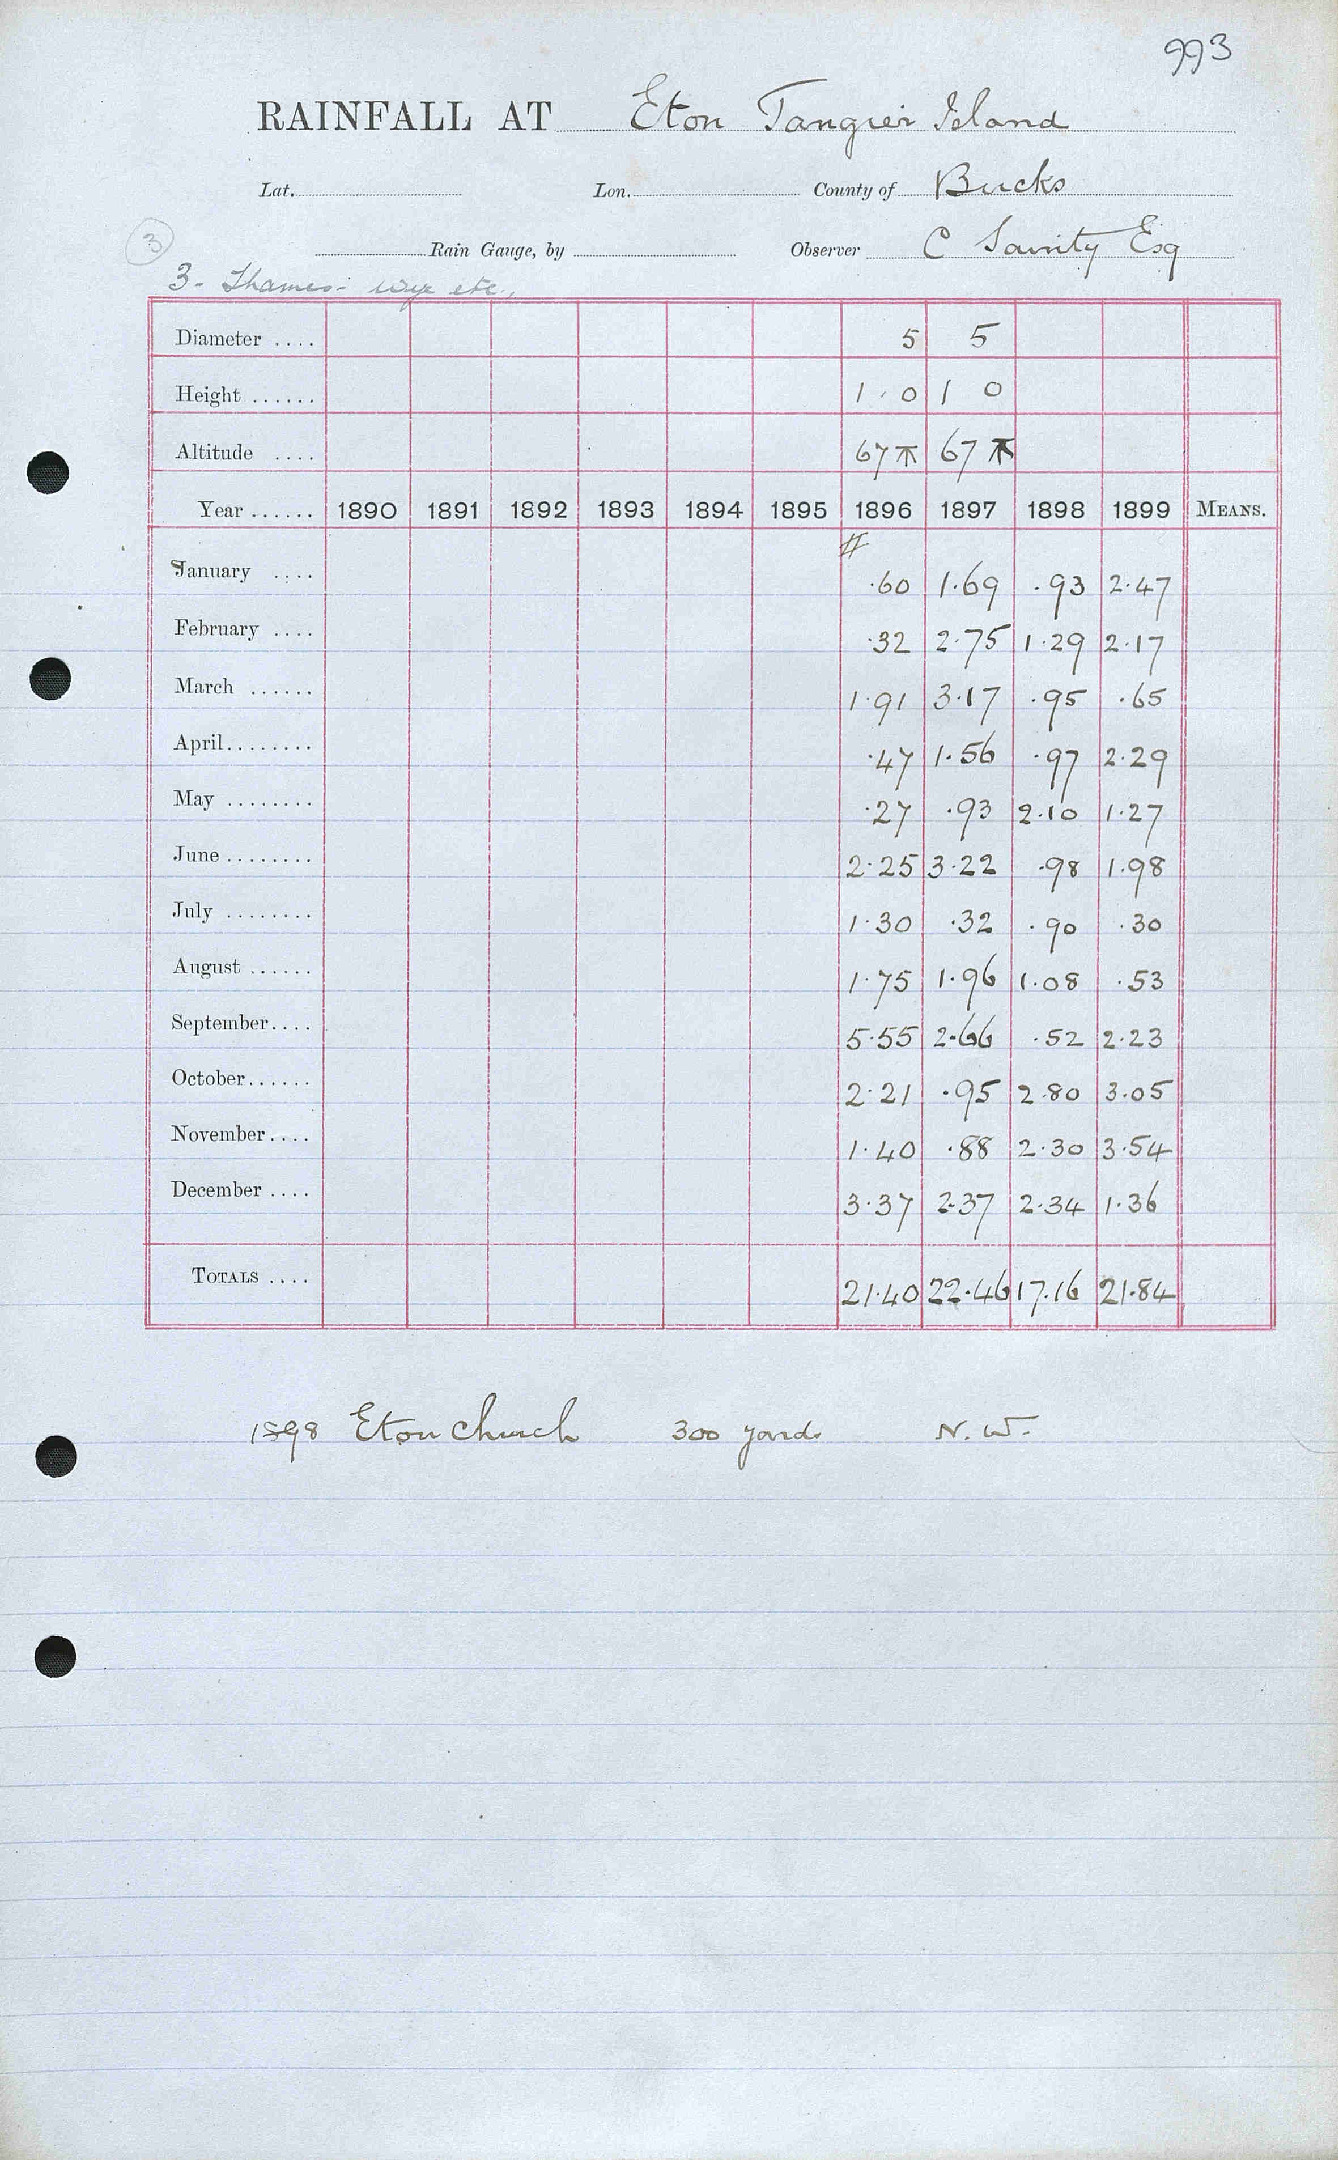 993
RAINFALL AT Eton Tangier Island
Lat. Lon. County of Bucks
3 Rain Gauge, by Observer C Esq
3 - Thames - Wye etc.,
Diameter .... 5 5
Height ...... 1 . 0 1 0
Altitude .... 67 67
Year ...... 1890 1891 1892 1893 1894 1895 1896 1897 1898 1899 MEANS.
January .... .60 1.69 .93 2.47
February .... .32 2.75 1.29 2.17
March ...... 1.91 3.17 .95 .65
April ........ .47 1.56 .97 2.29
May ........ .27 .93 2.10 1.27
June ........ 2.25 3.22 .98 1.98
July ........ 1.30 .32 .90 .30
August ...... 1.75 1.96 1.08 .53
September .... 5.55 2.66 .52 2.23
October ...... 2.21 .95 2.80 3.05
November .... 1.40 .88 2.30 3.54
December .... 3.37 2.37 2.34 1.36
TOTALS .... 21.40 22.46 17.16 21.84
1898 Eton Church 300 yards N.W.